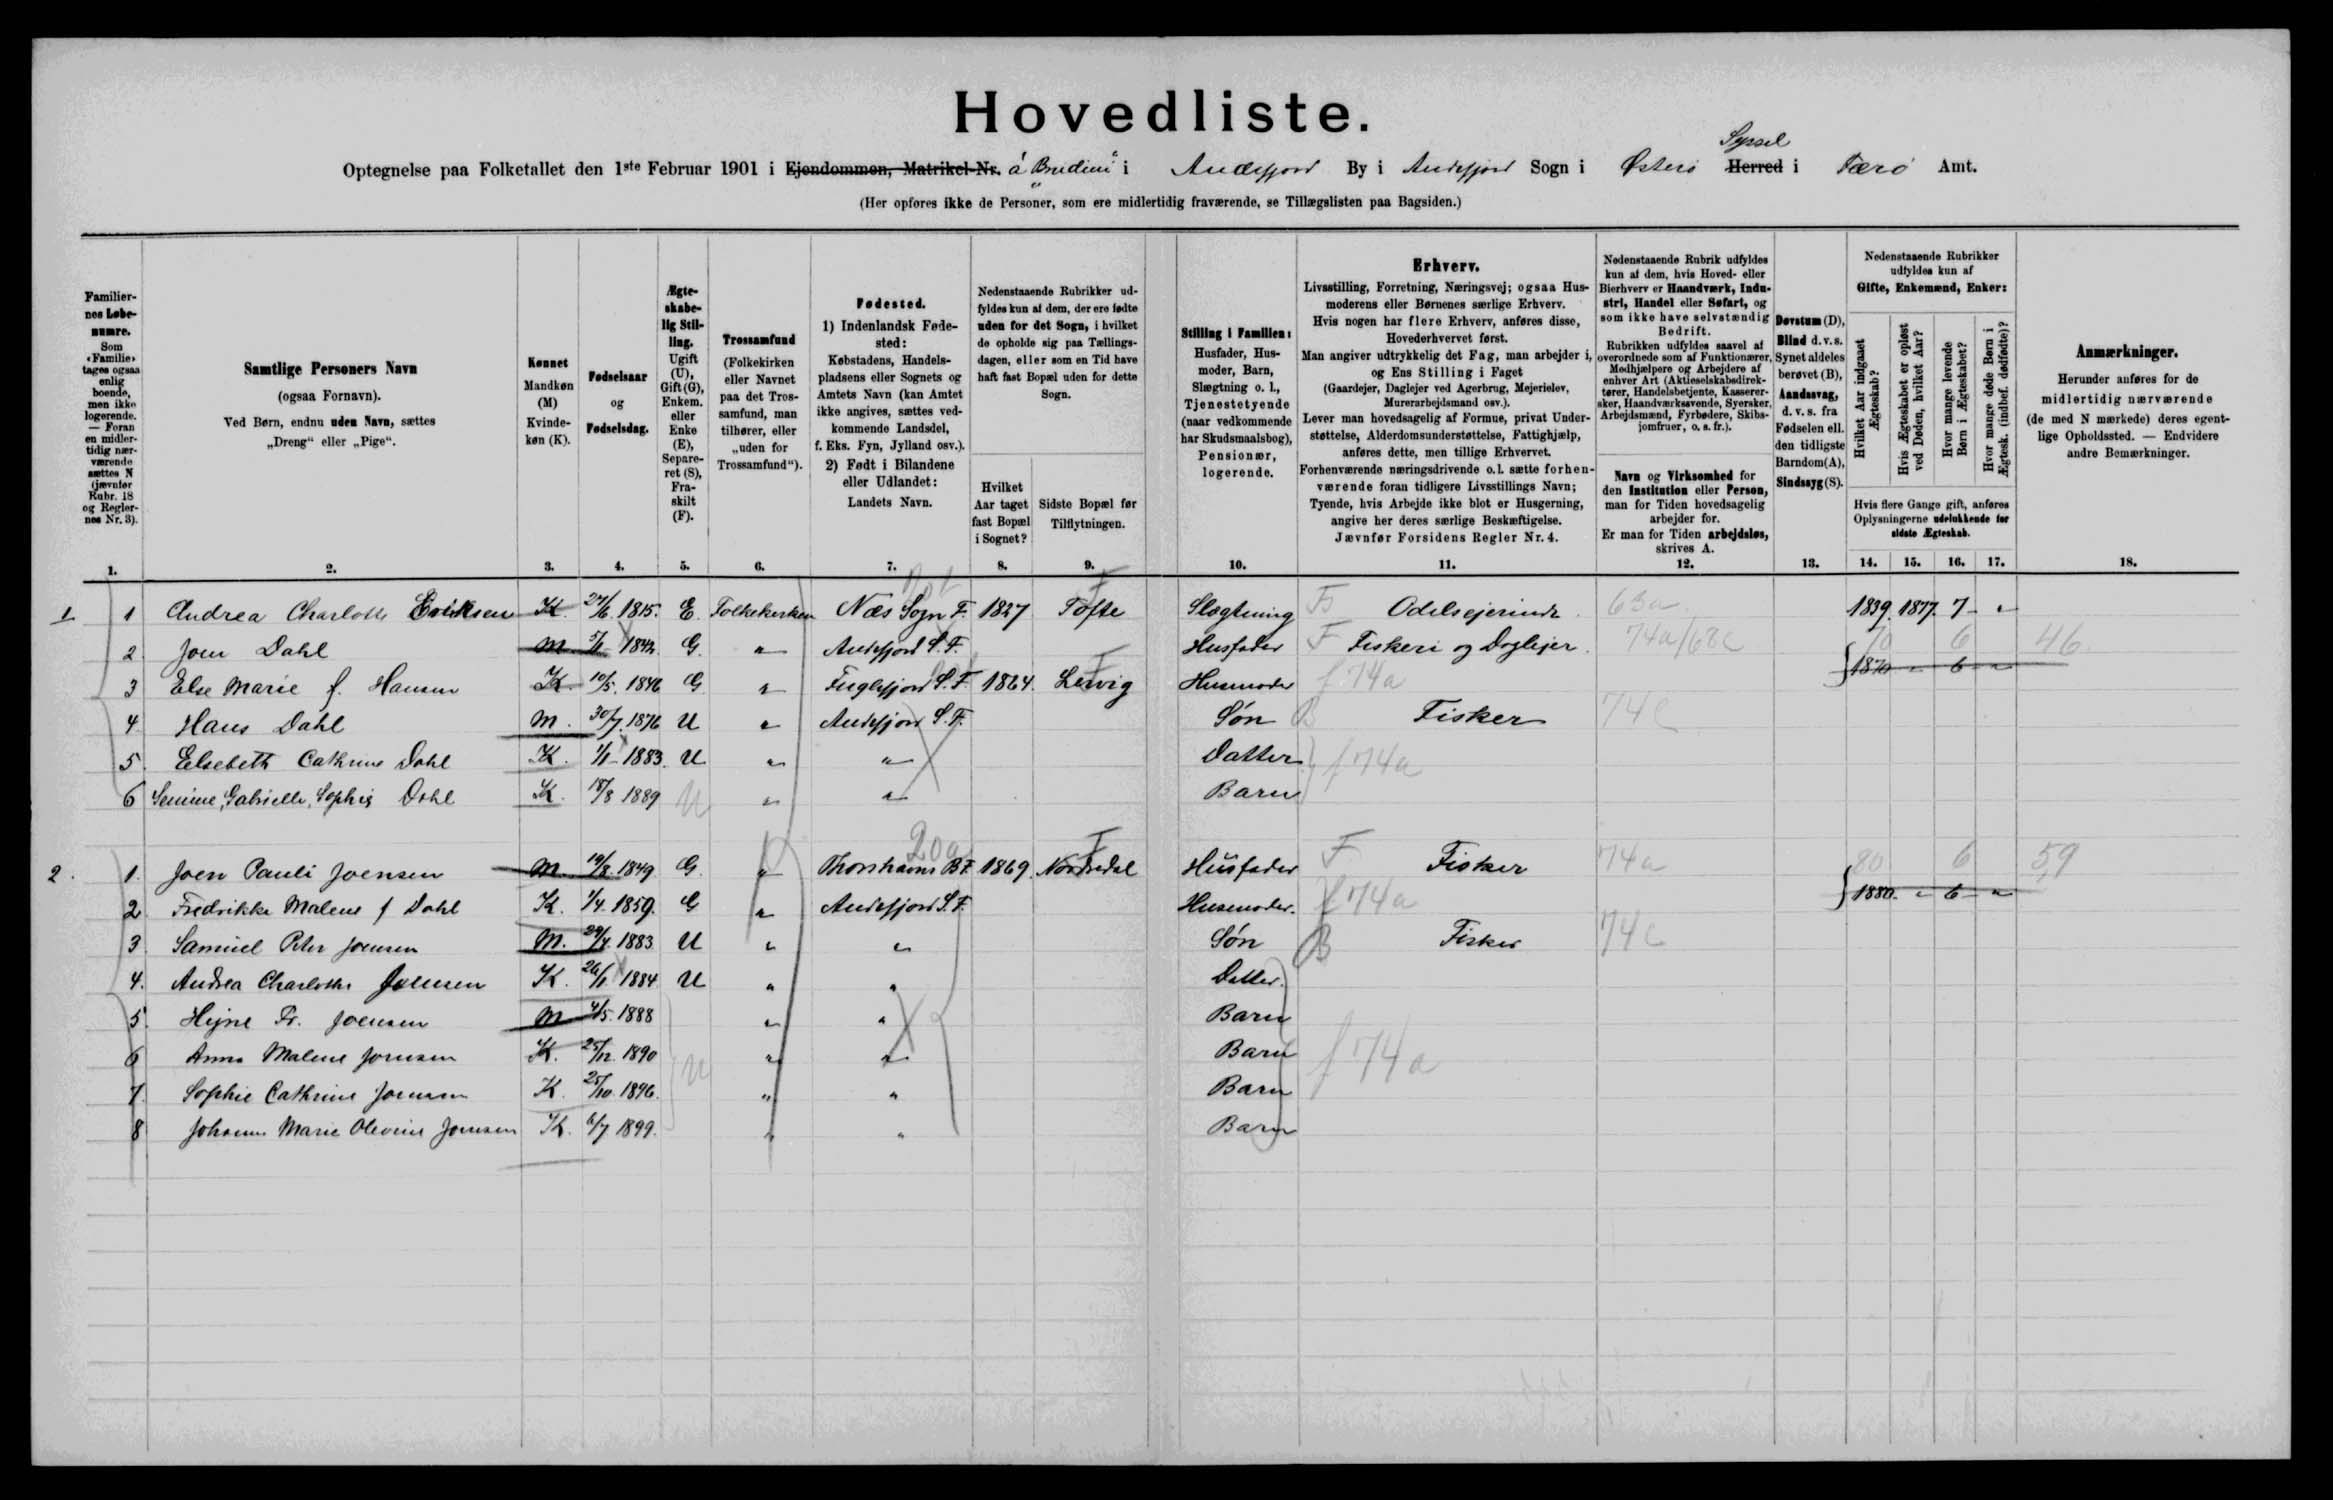 Hovedliste.
Optegnelse paa Folketallet den 1ste Februar 1901 i Ejendommen, Matrikel-Nr. i Andefjord By i Andefjord Sogn i Østerø Herred Syssel i Færø Amt.
(Her opføres ikke de Personer, som ere midlertidig fraværende, se Tillægslisten paa Bagsiden.)
Familiernes Løbenumre. Som «Familie» tages ogsaa enlig boende, men ikke logerende. — Foran en midlertidig nærværende sættes N (jævnfør Rubr. 18 og Reglernes Nr. 3).
Samtlige Personers Navn
(ogsaa Fornavn).
Ved Børn, endnu uden Navn, sættes
„Dreng“ eller „Pige“.
Kønnet
Mandkøn (M)
Kvindekøn (K).
Fødselsaar
og
Fødselsdag.
Ægteskabelig Stilling.
Ugift (U), Gift (G), Enkem. eller Enke (E), Separeret (S), Fraskilt (F).
Trossamfund
(Folkekirken eller Navnet paa det Trossamfund, man tilhører, eller „uden for Trossamfund“).
Fødested.
1) Indenlandsk Fødested:
Købstadens, Handelspladsens eller Sognets og Amtets Navn (kan Amtet ikke angives, sættes vedkommende Landsdel, f. Eks. Fyn, Jylland osv.).
2) Født i Bilandene eller Udlandet:
Landets Navn.
Nedenstaaende Rubrikker udfyldes kun af dem, der ere fødte uden for det Sogn, i hvilket de opholde sig paa Tællingsdagen, eller som en Tid have haft fast Bopæl uden for dette Sogn.
Hvilket Aar taget fast Bopæl i Sognet?
Sidste Bopæl før Tilflytningen.
Stilling i Familien:
Husfader, Husmoder, Barn, Slægtning o. l., Tjenestetyende (naar vedkommende har Skudsmaalsbog), Pensionær, logerende.
Erhverv.
Livsstilling, Forretning, Næringsvej; ogsaa Husmoderens eller Børnenes særlige Erhverv.
Hvis nogen har flere Erhverv, anføres disse, Hovederhvervet først.
Man angiver udtrykkelig det Fag, man arbejder i, og Ens Stilling i Faget
(Gaardejer, Daglejer ved Agerbrug, Mejerielev, Murerarbejdsmand osv.).
Lever man hovedsagelig af Formue, privat Understøttelse, Alderdomsunderstøttelse, Fattighjælp, anføres dette, men tillige Erhvervet.
Forhenværende næringsdrivende o. l. sætte forhenværende foran tidligere Livsstillings Navn;
Tyende, hvis Arbejde ikke blot er Husgerning, angive her deres særlige Beskæftigelse.
Jævnfør Forsidens Regler Nr. 4.
Nedenstaaende Rubrik udfyldes kun af dem, hvis Hoved- eller Bierhverv er Haandværk, Industri, Handel eller Søfart, og som ikke have selvstændig Bedrift.
Rubrikken udfyldes saavel af overordnede som af Funktionærer, Medhjælpere og Arbejdere af enhver Art (Aktieselskabsdirektører, Handelsbetjente, Kasserersker, Haandværkssvende, Syersker, Arbejdsmænd, Fyrbødere, Skibsjomfruer, o. s. fr.).
Navn og Virksomhed for den Institution eller Person, man for Tiden hovedsagelig arbejder for.
Er man for Tiden arbejdsløs, skrives A.
Døvstum (D), Blind d. v. s. Synet aldeles berøvet (B), Aandssvag, d. v. s. fra Fødselen ell. den tidligste Barndom (A), Sindssyg (S).
Nedenstaaende Rubrikker udfyldes kun af Gifte, Enkemænd, Enker:
Hvilket Aar indgaaet Ægteskab?
Hvis Ægteskabet er opløst ved Døden, hvilket Aar?
Hvor mange levende Børn i Ægteskabet?
Hvor mange døde Børn i Ægtesk. (indbef. dødfødte)?
Hvis flere Gange gift, anføres Oplysningerne udelukkende for sidste Ægteskab.
Anmærkninger.
Herunder anføres for de midlertidig nærværende (de med N mærkede) deres egentlige Opholdssted. — Endvidere andre Bemærkninger.
1. 2. 3. 4. 5. 6. 7. 8. 9. 10. 11. 12. 13. 14. 15. 16. 17. 18.
1 1 Andrea Charlotte Eriksen K. 27/6 1815. E. Folkekirken Næs Sogn F. 1827 Tofte Slægtning Odelsejerinde 63a 1839. 1877. 7 - "
2 Joen Dahl M 1842 G. " Andefjord S.F. Husfader F Fiskeri og Daglejer. 74a/68c 70 6 46.
3 Else Marie f. Hansen K 10/5. 1846 G " Fuglefjord S.F. 1864. Lervig Husmoder f 74a 1870 - 6 - "
4 Hans Dahl M. 30/7. 1876 U " Andefjord S.F. Søn B Fisker 74c
5. Elsebeth Cathrine Dahl K. 1/1 - 1883. U " " Datter f 74a
6 Senine, Gabrielle, Sophie Dahl K. 18/8 1889 U " " Barn
2. 1. Joen Pauli Joensen M. 19/8. 1849 G. " 20a Thorshavns B.F. 1869. Nordredal Husfader F Fisker 74a 80 6 59
2 Fredrikke Malene f Dahl K. 1/4. 1859. G " Andefjord S.F. Husmoder. f 74a 1880. - 6 - "
3 Samuel Peter Joensen M. 29/4. 1883 U " " Søn B Fisker 74c
4. Andrea Charlotte Joensen K. 26/1 1884 U " " Datter.
5. Hejne Fr. Joensen M 4/5. 1888 " " Barn
6 Anna Malene Joensen K. 25/12. 1890 U " " Barn f 74a
7. Sophie Cathrine Joensen K. 25/10. 1896. " " Barn
8 Johanne Marie Olevine Joensen K. 6/7 1899. " " Barn